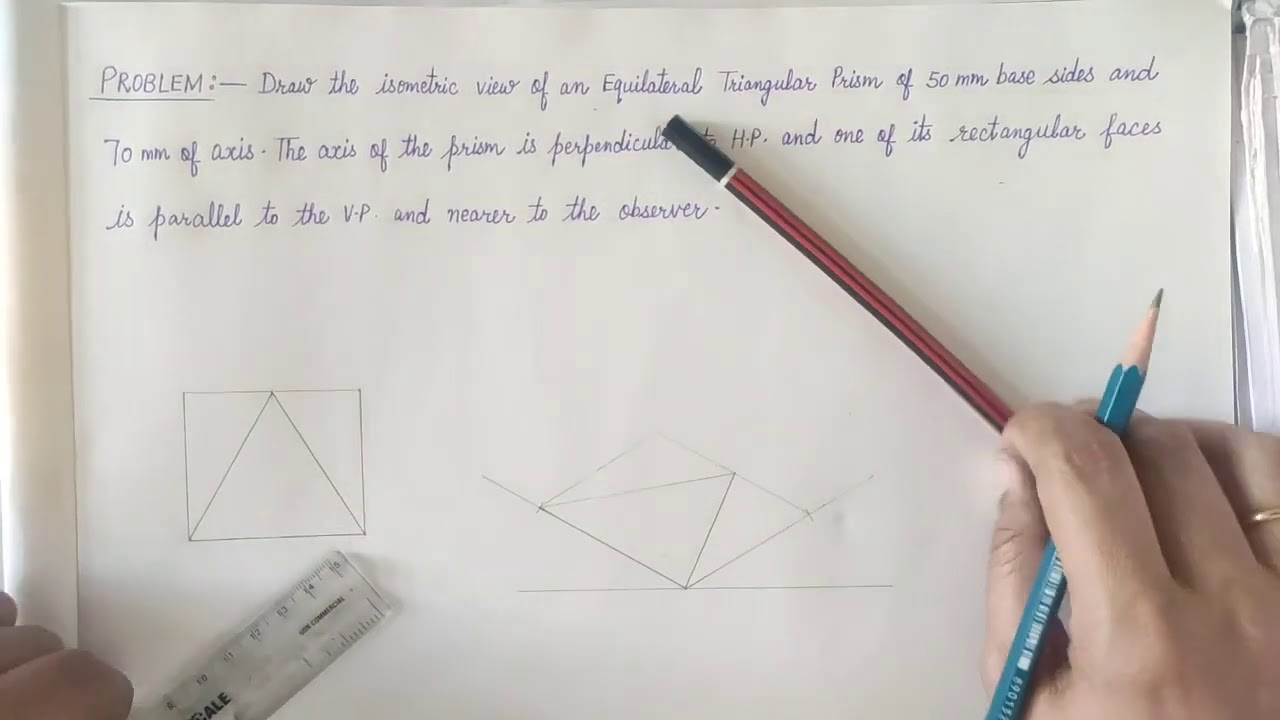 PROBLEM:— Draw the isometric view of an Equilateral Triangular Prism of 50 mm base sides and
70 mm of axis. The axis of the prism is H.P. and one of its rectangular faces
is parallel to the V.P. and nearer to the observer.
15
14
13
12
11
10
NON COMMERCIAL